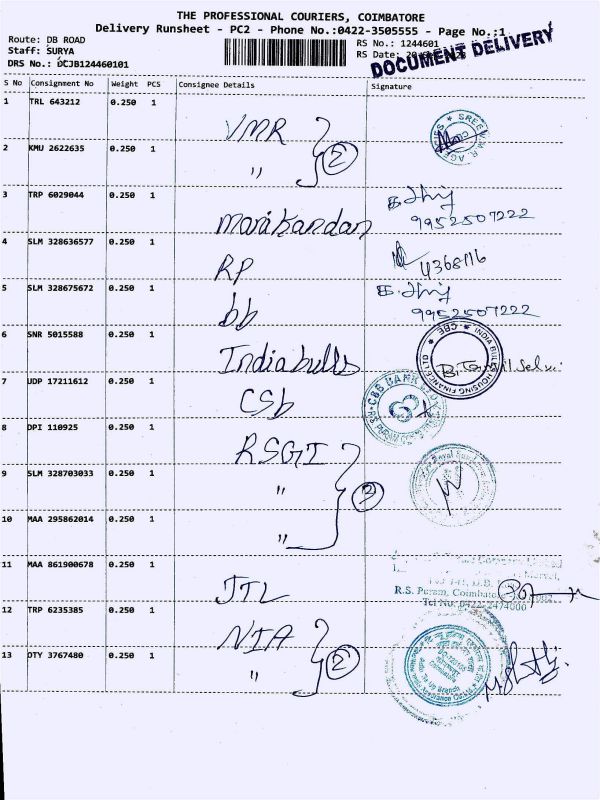 THE PROFESSIONAL COURIERS, COIMBATORE
Delivery Runsheet - PC2 - Phone No.:0422-3505555 - Page No.:1
Route: DB ROAD
RS No.: 1244601
Staff: SURYA
RS Date:
DOCUMENT DELIVERY
DRS No.: DCJB124460101
S No Consignment No Weight PCS Consignee Details Signature
1 TRL 643212 0.250 1 VMR
2 KMU 2622635 0.250 1 " 2
3 TRP 6029044 0.250 1 Marikandan 9952507222
4 SLM 328636577 0.250 1 RP 4368116
5 SLM 328675672 0.250 1 bb 9952507222
6 SNR 5015588 0.250 1 Indiabulls
INDIA BULLS HOUSING FINANCE LTD CBE
7 UDP 17211612 0.250 1 CSb
CSB BANK LTD
8 DPI 110925 0.250 1 RSGI
9 SLM 328703033 0.250 1 "
10 MAA 295862014 0.250 1 " 3
11 MAA 861900678 0.250 1 JTL
R.S. Puram, Coimbatore
Tel No: 0422-2474000
12 TRP 6235385 0.250 1 NIA
13 OTY 3767480 0.250 1 " 2